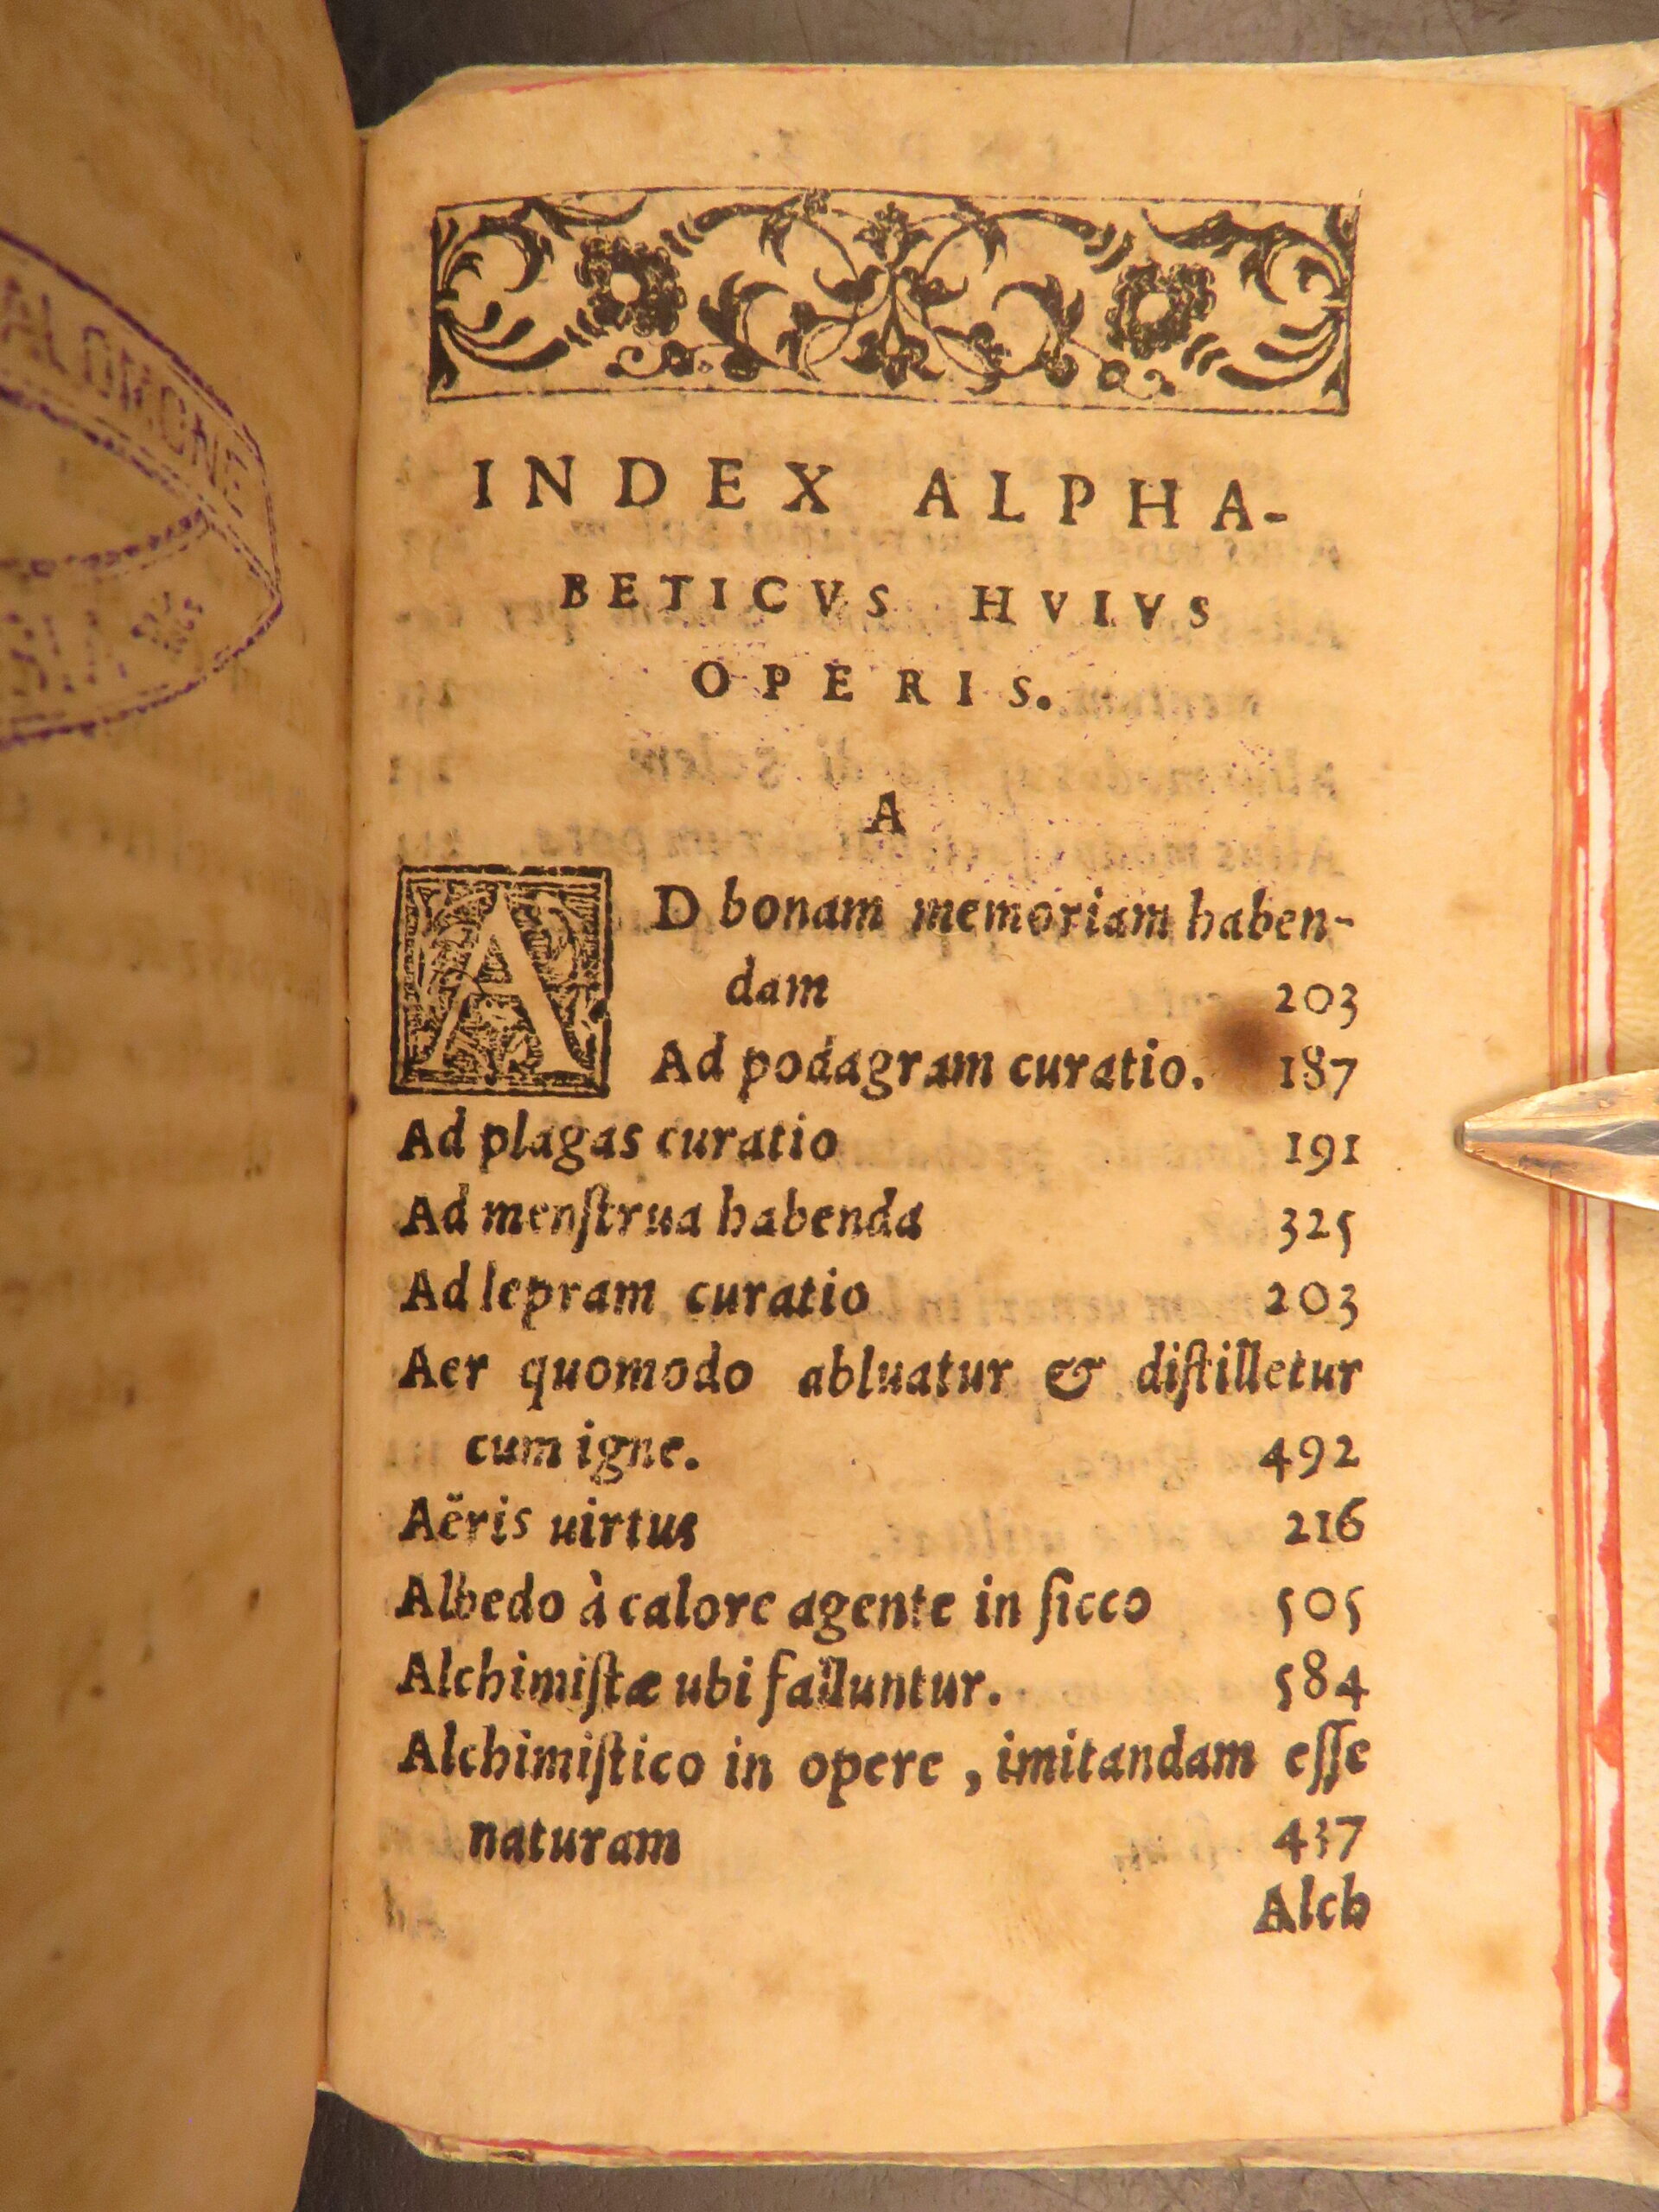 INDEX ALPHA-
BETICVS HVIVS
OPERIS.
A
AD bonam memoriam haben-
dam 203
Ad podagram curatio. 187
Ad plagas curatio 191
Ad menſtrua habenda 325
Ad lepram curatio 203
Aer quomodo abluatur & diſtilletur
cum igne. 492
Aëris uirtus 216
Albedo à calore agente in ſicco 505
Alchimiſtæ ubi falluntur. 584
Alchimiſtico in opere, imitandam eſſe
naturam 437
Alch